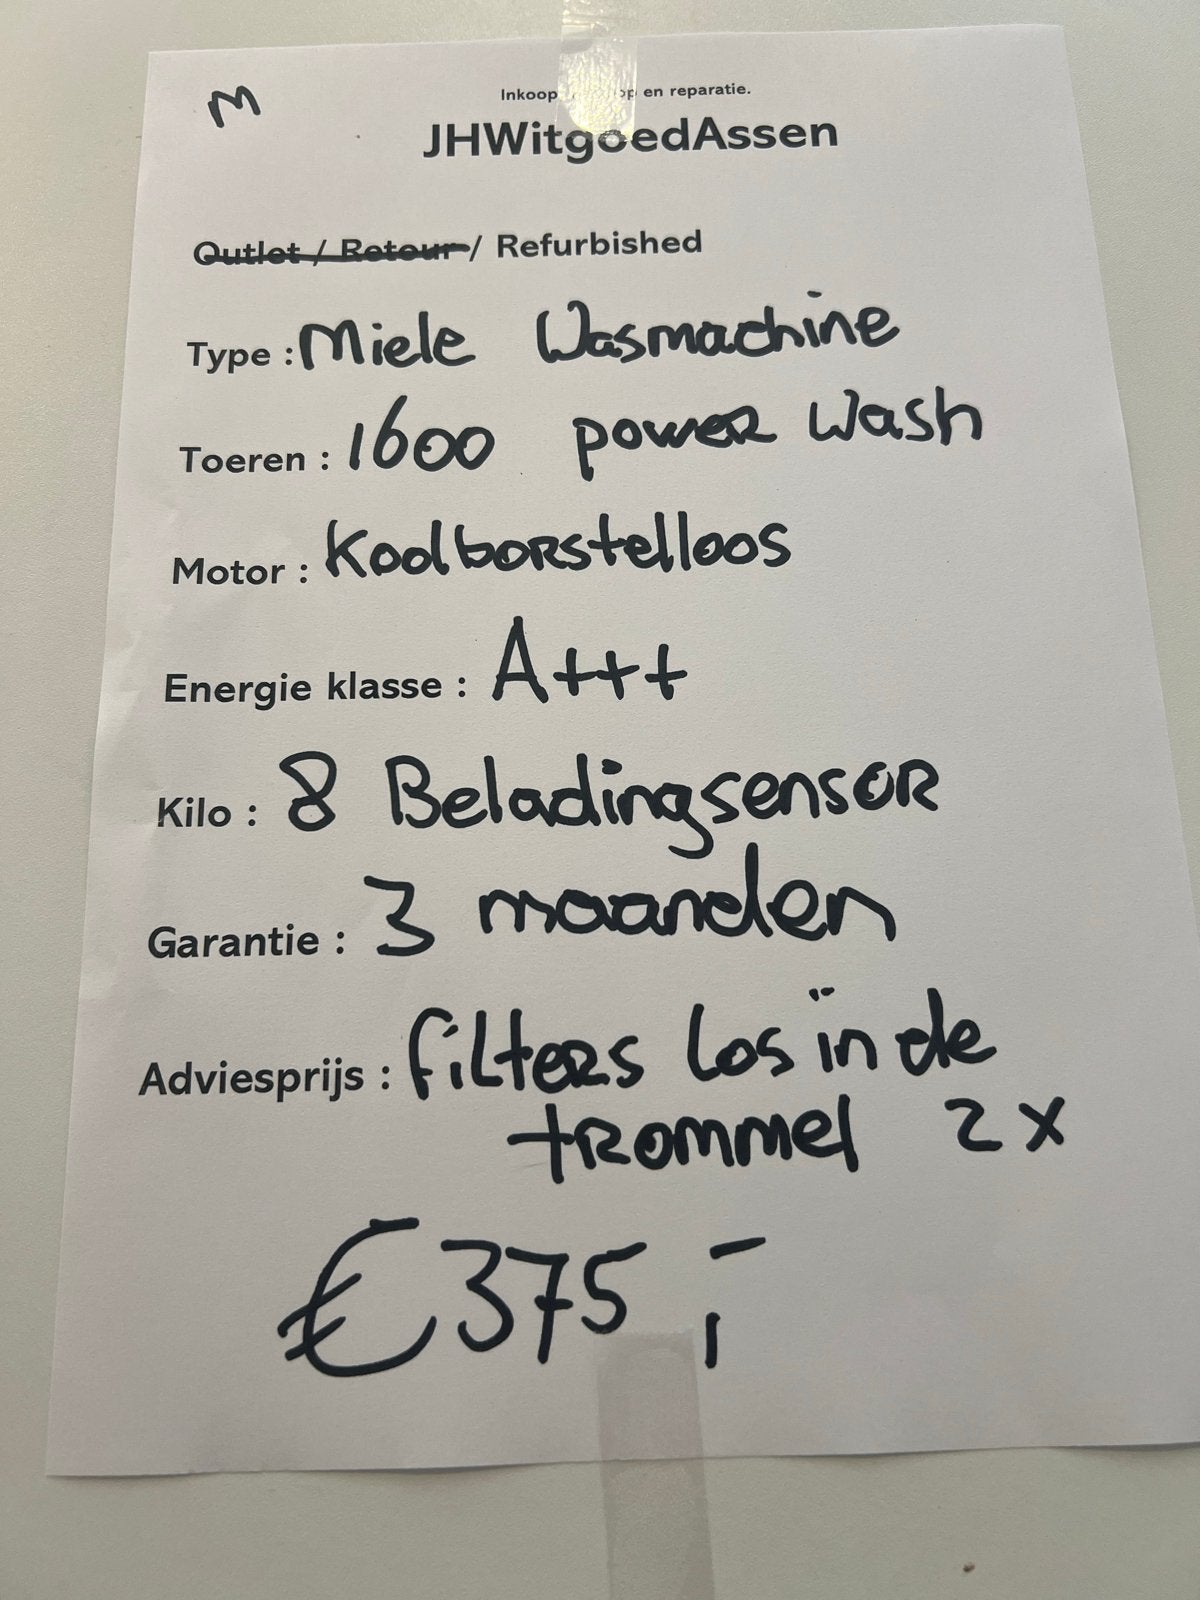 M
Inkoop en reparatie.
JHWitgoedAssen
Outlet / Retour / Refurbished
Type : Miele Wasmachine
Toeren : 1600 power Wash
Motor : Koolborstelloos
Energie klasse : A+++
Kilo : 8 Beladingsensor
Garantie : 3 maanden
Adviesprijs : filters los in de
trommel 2x
€375,-